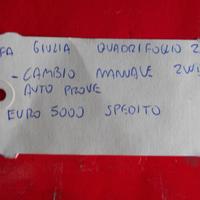 FA GIULIA QUADRIFOGLIO 2
- CAMBIO MANUALE 2W
AUTO PROVE
EURO 5000 SPEDITO